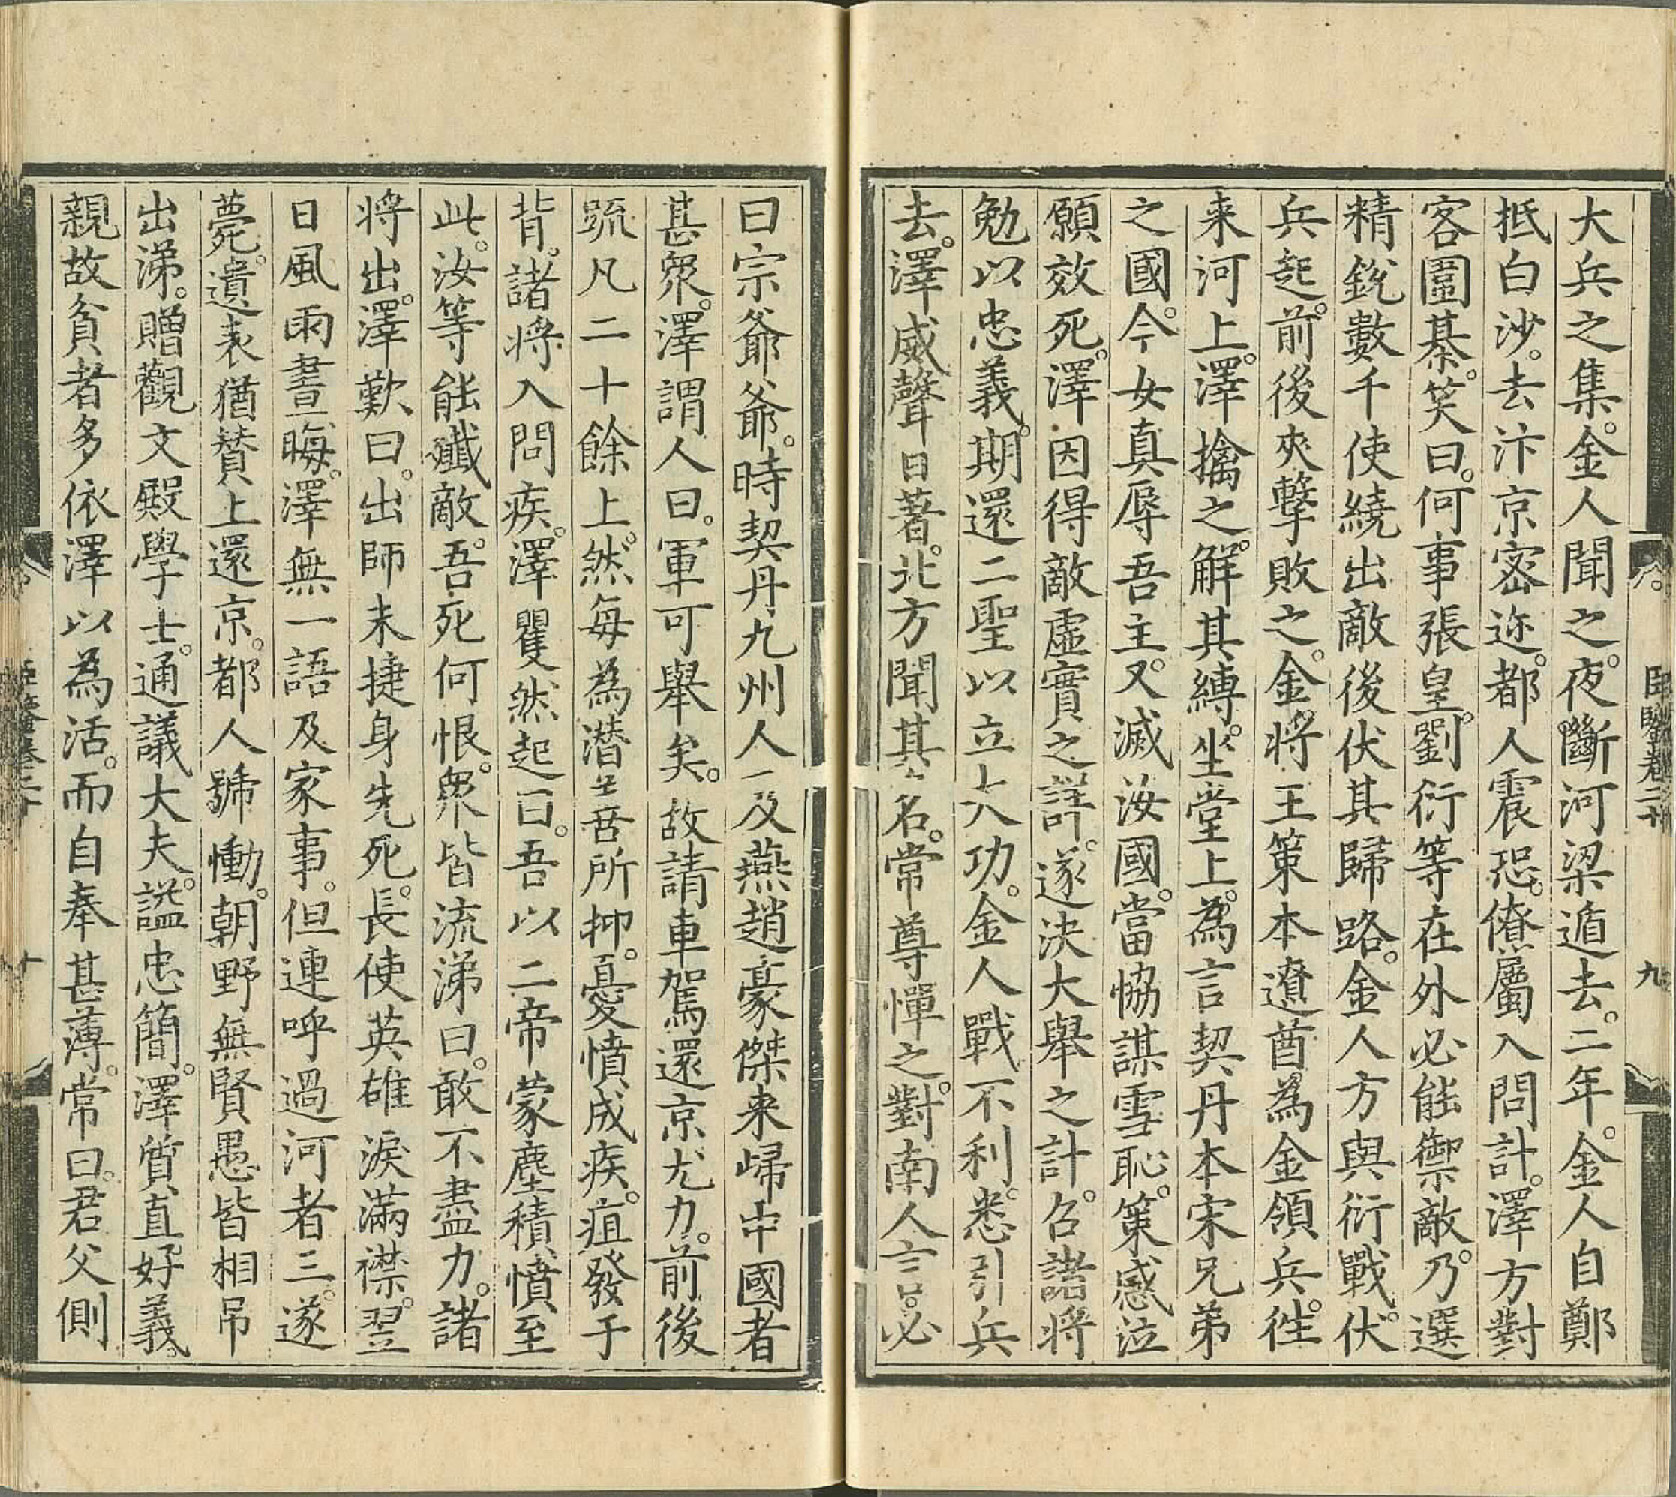 大兵之集。金人聞之。夜斷河梁遁去。二年。金人自鄭
抵白沙。去汴京密迩。都人震恐。僚屬入問計。澤方對
客圍棊。笑曰。何事張皇。劉衍等在外必能禦敵。乃選
精銳數千使繞出敵後伏其歸路。金人方與衍戰。伏
兵起。前後夾擊敗之。金將王策本遼酋。為金領兵。徃
来河上。澤擒之。解其縛。坐堂上。為言契丹本宋兄弟
之國。今女真辱吾主。又滅汝國。當恊謀雪恥。策感泣
願效死。澤因得敵虛實之詳。遂決大舉之計。召諸将
勉以忠義。期還二聖以立大功。金人戰不利。悉引兵
去。澤威聲日著。北方聞其名。常尊憚之。對南人言。必
曰宗爺爺。時契丹九州人及燕趙豪傑来歸中國者
甚眾。澤謂人曰。軍可舉矣。故請車駕還京尤力。前後
疏凡二十餘上。然每為潜善所抑。憂憤成疾。疽發于
背。諸将入問疾。澤矍然起曰。吾以二帝蒙塵積憤至
此。汝等能殲敵。吾死何恨。眾皆流涕曰。敢不盡力。諸
将出。澤歎曰。出師未捷身先死。長使英雄淚滿襟。翌
日風雨晝晦。澤無一語及家事。但連呼過河者三。遂
薨。遺表猶贊上還京。都人號慟。朝野無賢愚皆相吊
出涕。贈觀文殿學士。通議大夫。諡忠簡。澤質直好義。
親故貧者多依澤以為活。而自奉甚薄。常曰。君父側
卷二十
九
十